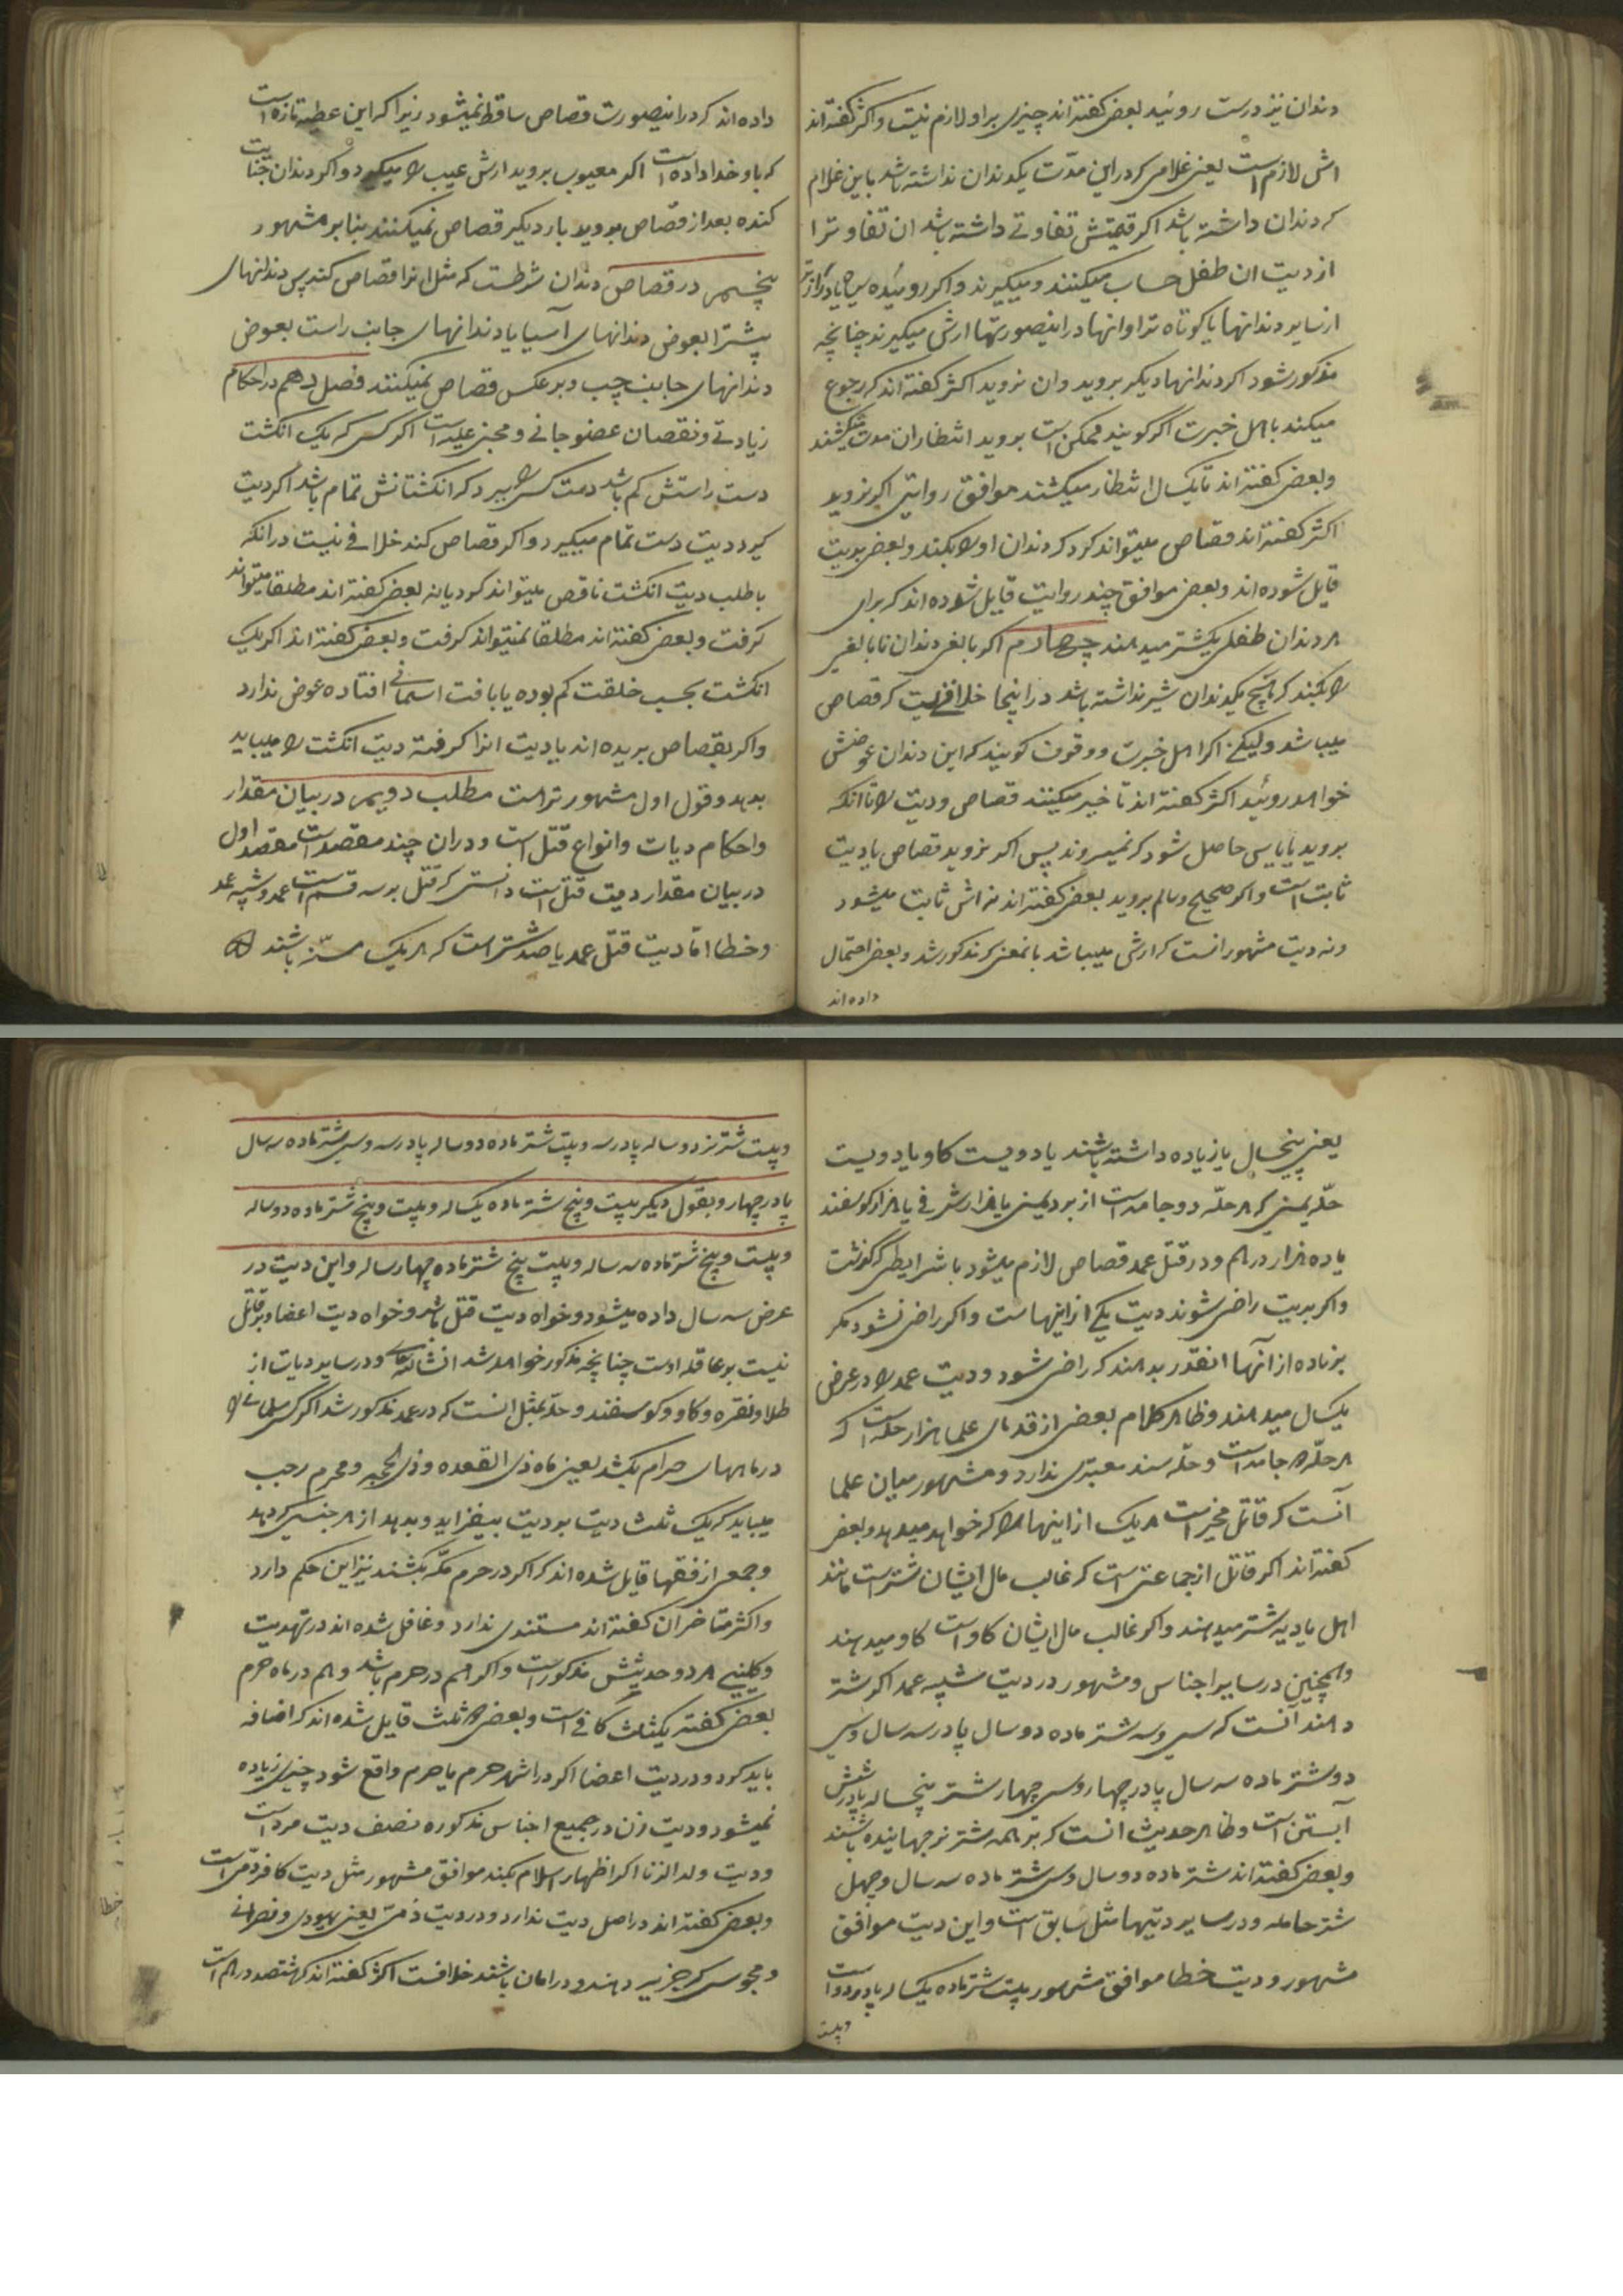 دندان نیز درست روئید بعضی گفته‌اند چیزی بر او لازم نیست و اکثر گفته‌اند
ارش لازم است یعنی غلامی که در این مدّت یکدندان نداشته باشد با این غلام
که دندان داشته باشد اگر قیمتش تفاوتی داشته باشد ان تفاوترا
از دیت ان طفل حساب میکنند و میگیرند و اگر روئیده سیاه یا درازتر
از سایر دندانها یا کوتاه‌تر از انها در اینصورتها ارش میگیرند چنانچه
مذکور شود اگر دندانها دیگر بروید و ان نروید اکثر گفته‌اند که رجوع
میکنند باهل خبرت اگر گویند ممکن است بروید انتظار ان مدت میکشند
و بعضی گفته‌اند تا یکسال انتظار میکشند موافق روایتی اگر نروید
اکثر گفته‌اند قصاص میتواند کرد که دندان او را بکند و بعضی بدیت
قایل شوده‌اند و بعضی موافق چند روایت قایل شوده‌اند که برای
هر دندان طفلی یکشتر میدهند چهارم اگر بالغی دندان نابالغی
را بکند که هیچ یکدندان شیر نداشته باشد در اینجا خلافی نیست که قصاص
میباشد ولیکن اگر اهل خبرت و وقوف گویند که این دندان عوضش
خواهد روئید اکثر گفته‌اند تاخیر میکنند قصاص و دیت را تا انکه
بروید یا یاس حاصل شود که نمیروید پس اگر نروید قصاص یا دیت
ثابت است و اگر صحیح و سالم بروید بعضی گفته‌اند نه ارش ثابت میشود
و نه دیت مشهور انست که ارش میباشد بانمعنی که مذکور شد و بعضی احتمال
داده‌اند
داده‌اند که در اینصورت قصاص ساقط نمیشود زیرا که این عطیه تازه است
که باو خدا داده است اگر معیوب بروید ارش عیب را میگیرد و اگر دندان جنایت
کننده بعد از قصاص بروید بار دیگر قصاص نمیکنند بنا بر مشهور
پنجم در قصاص دندان شرطست که مثل انرا قصاص کنند پس دندانهای
پیشرا بعوض دندانهای آسیا یا دندانهای جانب راست بعوض
دندانهای جانب چپ و بر عکس قصاص نمیکنند فصل دهم در احکام
زیادتی و نقصان عضو جانی و مجنی علیه است اگر کسی که یک انگشت
دست راستش کم باشد دست کسی را ببرد که انگشتانش تمام باشد اگر دیت
گیرد دیت دست تمام میگیرد و اگر قصاص کند خلافی نیست در انکه
با طلب دیت انگشت ناقص میتواند کرد یا نه بعضی گفته‌اند مطلقا میتواند
گرفت و بعضی گفته‌اند مطلقا نمیتواند گرفت و بعضی گفته‌اند اگر یک
انگشت بحسب خلقت کم بوده یا بافت اسمانی افتاده عوض ندارد
و اگر بقصاص بریده‌اند یا دیت انرا گرفته دیت انگشت را میباید
بدهد و قول اول مشهورتر است مطلب دویم در بیان مقدار
و احکام دیات و انواع قتل است و در ان چند مقصد است مقصد اول
در بیان مقدار دیت قتل است دانستی که قتل بر سه قسم است عمد و شبه عمد
و خطا امّا دیت قتل عمد یا صد شتر است که هر یک مسنّه باشند
یعنی پنجسال یا زیاده داشته باشند یا دویست گاو یا دویست
حلّه یمنی که هر حلّه دو جامه است از برد یمنی یا هزار اشرفی یا هزار گوسفند
یا ده هزار درهم و در قتل عمد قصاص لازم میشود با شرایطی که گذشت
و اگر بدیت راضی شوند دیت یکی از اینهاست و اگر راضی نشود مگر
بزیاده از آنها انقدر بدهند که راضی شود و دیت عمد را در عرض
یکسال میدهند و ظاهر کلام بعضی از قدمای علما هزار حله است که
هر حلّه ده جامه است و حلّه سند معتبری ندارد و مشهور میان علما
آنست که قاتل مخیر است هر یک از اینها را که خواهد میدهد و بعضی
گفته‌اند اگر قاتل از جماعتی است که غالب مال ایشان شتر است مانند
اهل بادیه شتر میدهند و اگر غالب مال ایشان گاو است گاو میدهند
و همچنین در سایر اجناس و مشهور در دیت شبیه عمد اگر شتر
دهند آنست که سی و سه شتر ماده دو سال پا در سه سال و سی
دو شتر ماده سه سال پا در چهار و سی چهار شتر پنجساله پا در شش
آبستن است و ظاهر حدیث انست که بر همه شتر نر جهانیده باشند
و بعضی گفته‌اند شتر ماده دو سال و سی شتر ماده سه سال و چهل
شتر حامله و در سایر دیتها مثل سابق است و این دیت موافق
مشهور و دیت خطا موافق مشهور بیست شتر ماده یکساله پا در دو است
و بیست
و بیست شتر نر دو ساله پا در سه و بیست شتر ماده دو ساله پا در سه و سی شتر ماده سه سال
پا در چهار و بقول دیگر بیست و پنج شتر ماده یکساله و بیست و پنج شتر ماده دو ساله
و بیست و پنج شتر ماده سه ساله و بیست پنج شتر ماده چهار ساله و این دیت در
عرض سه سال داده میشود و خواه دیت قتل باشد و خواه دیت اعضا و بر قاتل
نیست بر عاقله اوست چنانچه مذکور خواهد شد انشاالله تعالی و در سایر دیات از
طلا و نقره و گاو و گوسفند و حلّه بمثل انست که در عمد مذکور شد اگر کسی مسلمانی را
در ماههای حرام بکشد یعنی ماه ذی القعده و ذی الحجه و محرم رجب
میباید که یک ثلث دیت بر دیت بیفزاید و بدهد از هر جنسی که دهد
و جمعی از فقها قایل شده‌اند که اگر در حرم مکّه بکشند نیز این حکم دارد
و اکثر متاخران گفته‌اند مستندی ندارد و غافل شده‌اند در تهذیب
و کلینی هر دو حدیثش مذکور است و اگر هم در حرم باشد و هم در ماه حرم
بعضی گفته یکثلث کافی است و بعضی دو ثلث قایل شده‌اند که اضافه
باید کرد و در دیت اعضا اگر در اشهر حرم یا حرم واقع شود چیزی زیاده
نمیشود و دیت زن در جمیع اجناس مذکوره نصف دیت مرد است
و دیت ولد الزنا اگر اظهار اسلام بکند موافق مشهور مثل دیت کافر ذمّی است
و بعضی گفته‌اند در اصل دیت ندارد و در دیت ذمّی یعنی یهودی و نصرانی
و مجوسی که جزیه دهند و در امان باشند خلافست اکثر گفته‌اند که هشتصد درهم است
خطا